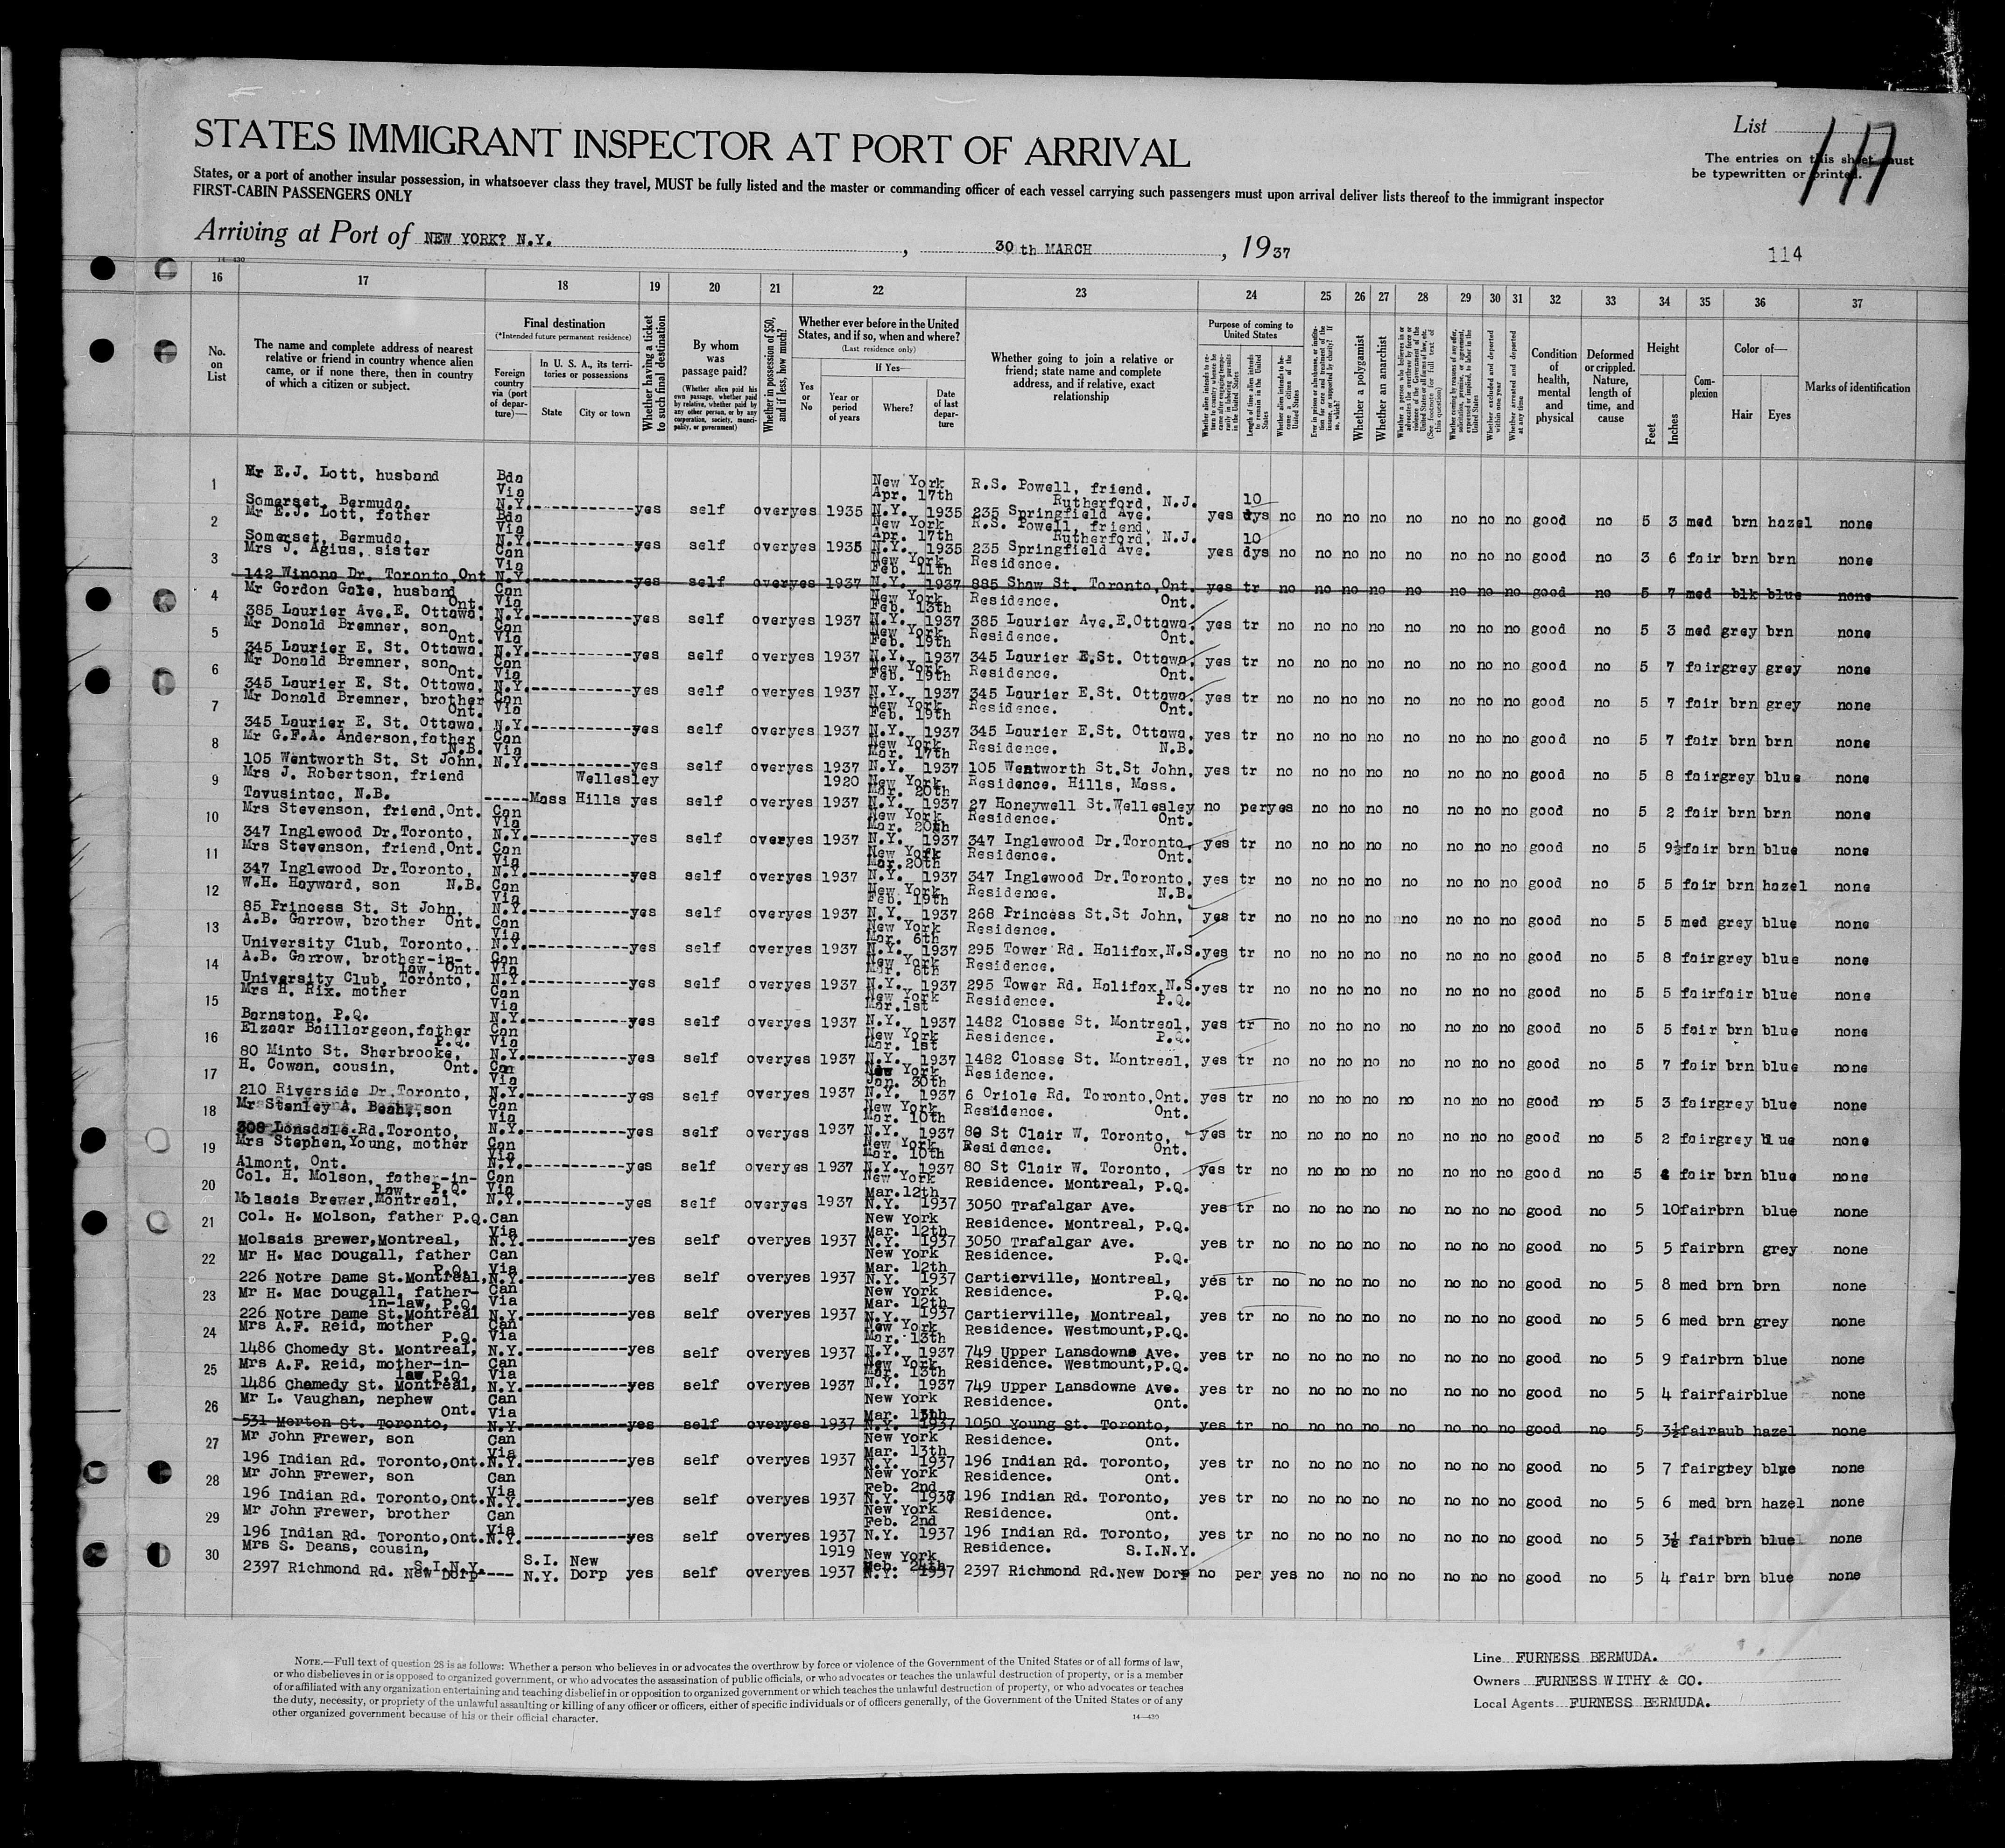 STATES IMMIGRANT INSPECTOR AT PORT OF ARRIVAL
List 1A
The entries on this sheet must
be typewritten or printed.
States, or a port of another insular possession, in whatsoever class they travel, MUST be fully listed and the master or commanding officer of each vessel carrying such passengers must upon arrival deliver lists thereof to the immigrant inspector
FIRST-CABIN PASSENGERS ONLY
Arriving at Port of NEW YORK? N.Y. , 30 th MARCH , 19 37
114
14—430
16 17 18 19 20 21 22 23 24 25 26 27 28 29 30 31 32 33 34 35 36 37
No. on List
The name and complete address of nearest relative or friend in country whence alien came, or if none there, then in country of which a citizen or subject.
Final destination
(*Intended future permanent residence)
Foreign country via (port of departure)—
In U. S. A., its territories or possessions
State
City or town
Whether having a ticket to such final destination
By whom was passage paid?
(Whether alien paid his own passage, whether paid by relative, whether paid by any other person, or by any corporation, society, municipality, or government)
Whether in possession of $50, and if less, how much?
Whether ever before in the United States, and if so, when and where?
(Last residence only)
Yes or No
If Yes—
Year or period of years
Where?
Date of last departure
Whether going to join a relative or friend; state name and complete address, and if relative, exact relationship
Purpose of coming to United States
Length of time alien intends to remain in the United States
Whether a polygamist
Whether an anarchist
Whether excluded and deported within one year
Whether arrested and deported at any time
Condition of health, mental and physical
Deformed or crippled. Nature, length of time, and cause
Height
Feet
Inches
Complexion
Color of—
Hair
Eyes
Marks of identification
1 Mr E.J. Lott, husband Somerset, Bermuda. Bda Via N.Y. yes self over yes 1935 New York N.Y. Apr. 17th 1935 R.S. Powell, friend. Rutherford, N.J. 235 Springfield Ave. yes 10 dys no no no no no no no no good no 5 3 med brn hazel none
2 Mr E.J. Lott, father Somerset, Bermuda. Bda Via N.Y. yes self over yes 1935 New York N.Y. Apr. 17th 1935 R.S. Powell, friend. Rutherford, N.J. 235 Springfield Ave. yes 10 dys no no no no no no no no good no 3 6 fair brn brn none
3 Mrs J. Agius, sister 142 Winona Dr. Toronto, Ont Can Via N.Y. yes self over yes 1937 New York N.Y. Feb. 11th 1937 Residence. 885 Shaw St. Toronto, Ont. yes tr no no no no no no no no good no 5 7 med blk blue none
4 Mr Gordon Gale, husband 385 Laurier Ave.E. Ottawa, Ont. Can Via N.Y. yes self over yes 1937 New York N.Y. Feb. 13th 1937 Residence. 385 Laurier Ave.E.Ottawa, Ont. yes tr no no no no no no no no good no 5 3 med grey brn none
5 Mr Donald Bremner, son 345 Laurier E. St. Ottawa, Ont. Can Via N.Y. yes self over yes 1937 New York N.Y. Feb. 19th 1937 Residence. 345 Laurier E.St. Ottawa, Ont. yes tr no no no no no no no no good no 5 7 fair grey grey none
6 Mr Donald Bremner, son 345 Laurier E. St. Ottawa, Ont. Can Via N.Y. yes self over yes 1937 New York N.Y. Feb. 19th 1937 Residence. 345 Laurier E.St. Ottawa, Ont. yes tr no no no no no no no no good no 5 7 fair brn grey none
7 Mr Donald Bremner, brother 345 Laurier E. St. Ottawa, Ont. Can Via N.Y. yes self over yes 1937 New York N.Y. Feb. 19th 1937 Residence. 345 Laurier E.St. Ottawa, Ont. yes tr no no no no no no no no good no 5 7 fair brn brn none
8 Mr G.F.A. Anderson, father 105 Wentworth St. St John, N.B. Can Via N.Y. yes self over yes 1937 New York N.Y. Mar. 17th 1937 Residence. 105 Wentworth St.St John, N.B. yes tr no no no no no no no no good no 5 8 fair grey blue none
9 Mrs J. Robertson, friend Tavusintac, N.B. Mass Wellesley Hills yes self over yes 1920 1937 New York N.Y. Mar. 20th 1937 Residence. Hills, Mass. 27 Honeywell St.Wellesley no per yes no no no no no no no good no 5 2 fair brn brn none
10 Mrs Stevenson, friend, Ont. 347 Inglewood Dr.Toronto, Can Via N.Y. yes self over yes 1937 New York N.Y. Mar. 20th 1937 Residence. 347 Inglewood Dr.Toronto, Ont. yes tr no no no no no no no no good no 5 9½ fair brn blue none
11 Mrs Stevenson, friend, Ont. 347 Inglewood Dr.Toronto, Can Via N.Y. yes self over yes 1937 New York N.Y. Mar. 20th 1937 Residence. 347 Inglewood Dr.Toronto, Ont. yes tr no no no no no no no no good no 5 5 fair brn hazel none
12 W.H. Hayward, son N.B. 85 Princess St. St John, Can Via N.Y. yes self over yes 1937 New York N.Y. Feb. 19th 1937 Residence. 268 Princess St.St John, N.B. yes tr no no no no no no no no good no 5 5 med grey blue none
13 A.B. Garrow, brother Ont. University Club, Toronto, Can Via N.Y. yes self over yes 1937 New York N.Y. Mar. 6th 1937 Residence. 295 Tower Rd. Halifax,N.S. yes tr no no no no no no no no good no 5 8 fair grey blue none
14 A.B. Garrow, brother-in-law, Ont. University Club, Toronto, Can Via N.Y. yes self over yes 1937 New York N.Y. Mar. 6th 1937 Residence. 295 Tower Rd. Halifax,N.S. yes tr no no no no no no no no good no 5 5 fair fair blue none
15 Mrs H. Rix. mother Barnston, P.Q. Can Via N.Y. yes self over yes 1937 New York N.Y. Mar.1st 1937 Residence. 1482 Closse St. Montreal, P.Q. yes tr no no no no no no no no good no 5 5 fair brn blue none
16 Elzaar Baillargeon, father 80 Minto St. Sherbrooke, P.Q. Can Via N.Y. yes self over yes 1937 New York N.Y. Mar. 1st 1937 Residence. 1482 Closse St. Montreal, P.Q. yes tr no no no no no no no no good no 5 7 fair brn blue none
17 H. Cowan, cousin, Ont. 210 Riverside Dr.Toronto, Can Via N.Y. yes self over yes 1937 New York N.Y. Jan. 30th 1937 Residence. 6 Oriole Rd. Toronto,Ont. yes tr no no no no no no no no good no 5 3 fair grey blue none
18 Mr Stanley A. Beah, son Lonsdale Rd.Toronto, Can Via N.Y. yes self over yes 1937 New York N.Y. Mar. 10th 1937 Residence. 80 St Clair W. Toronto, Ont. yes tr no no no no no no no no good no 5 2 fair grey blue none
19 Mrs Stephen,Young, mother Almont, Ont. Can Via N.Y. yes self over yes 1937 New York N.Y. Mar. 10th 1937 Residence. 80 St Clair W. Toronto, Ont. yes tr no no no no no no no no good no 5 fair brn blue none
20 Col. H. Molson, father-in-law, P.Q. Molsais Brewer,Montreal, Can Via N.Y. yes self over yes 1937 New York N.Y. Mar.12th 1937 Residence. Montreal, P.Q. 3050 Trafalgar Ave. yes tr no no no no no no no no good no 5 10 fair brn blue none
21 Col. H. Molson, father P.Q. Molsais Brewer,Montreal, Can Via N.Y. yes self over yes 1937 New York N.Y. Mar. 12th 1937 Residence. Montreal, P.Q. 3050 Trafalgar Ave. yes tr no no no no no no no no good no 5 5 fair brn grey none
22 Mr H. Mac Dougall, father P.Q. 226 Notre Dame St.Montreal, Can Via N.Y. yes self over yes 1937 New York N.Y. Mar. 12th 1937 Residence. P.Q. Cartierville, Montreal, yes tr no no no no no no no no good no 5 8 med brn brn none
23 Mr H. Mac Dougall, father-in-law, P.Q. 226 Notre Dame St.Montreal Can Via N.Y. yes self over yes 1937 New York N.Y. Mar. 12th 1937 Residence. P.Q. Cartierville, Montreal, yes tr no no no no no no no no good no 5 6 med brn grey none
24 Mrs A.F. Reid, mother P.Q. 1486 Chomedy St. Montreal, Can Via N.Y. yes self over yes 1937 New York N.Y. Mar. 13th 1937 Residence. Westmount,P.Q. 749 Upper Lansdowne Ave. yes tr no no no no no no no no good no 5 9 fair brn blue none
25 Mrs A.F. Reid, mother-in-law P.Q. 1486 Chemedy St. Montreal, Can Via N.Y. yes self over yes 1937 New York N.Y. Mar. 13th 1937 Residence. Westmount,P.Q. 749 Upper Lansdowne Ave. yes tr no no no no no no no no good no 5 4 fair fair blue none
26 Mr L. Vaughan, nephew Ont. 531 Merton St. Toronto, Can Via N.Y. yes self over yes 1937 New York N.Y. Mar. 13th 1937 Residence. Ont. 1050 Young St. Toronto, yes tr no no no no no no no no good no 5 3½ fair aub hazel none
27 Mr John Frewer, son 196 Indian Rd. Toronto,Ont. Can Via N.Y. yes self over yes 1937 New York N.Y. Mar. 13th 1937 Residence. Ont. 196 Indian Rd. Toronto, yes tr no no no no no no no no good no 5 7 fair grey blue none
28 Mr John Frewer, son 196 Indian Rd. Toronto,Ont. Can Via N.Y. yes self over yes 1937 New York N.Y. Feb. 2nd 1937 Residence. Ont. 196 Indian Rd. Toronto, yes tr no no no no no no no no good no 5 6 med brn hazel none
29 Mr John Frewer, brother 196 Indian Rd. Toronto,Ont. Can Via N.Y. yes self over yes 1937 New York N.Y. Feb. 2nd 1937 Residence. Ont. 196 Indian Rd. Toronto, yes tr no no no no no no no no good no 5 3½ fair brn blue none
30 Mrs S. Deans, cousin, S.I.N.Y. 2397 Richmond Rd. New Dorp S.I. N.Y. New Dorp yes self over yes 1919 1937 New York N.Y. Feb. 24th 1937 Residence. S.I.N.Y. 2397 Richmond Rd.New Dorp no per yes no no no no no no no good no 5 4 fair brn blue none
NOTE.—Full text of question 28 is as follows: Whether a person who believes in or advocates the overthrow by force or violence of the Government of the United States or of all forms of law,
or who disbelieves in or is opposed to organized government, or who advocates the assassination of public officials, or who advocates or teaches the unlawful destruction of property, or is a member
of or affiliated with any organization entertaining and teaching disbelief in or opposition to organized government or which teaches the unlawful destruction of property, or who advocates or teaches
the duty, necessity, or propriety of the unlawful assaulting or killing of any officer or officers, either of specific individuals or of officers generally, of the Government of the United States or of any
other organized government because of his or their official character.
14—430
Line FURNESS BERMUDA.
Owners FURNESS WITHY & CO.
Local Agents FURNESS BERMUDA.